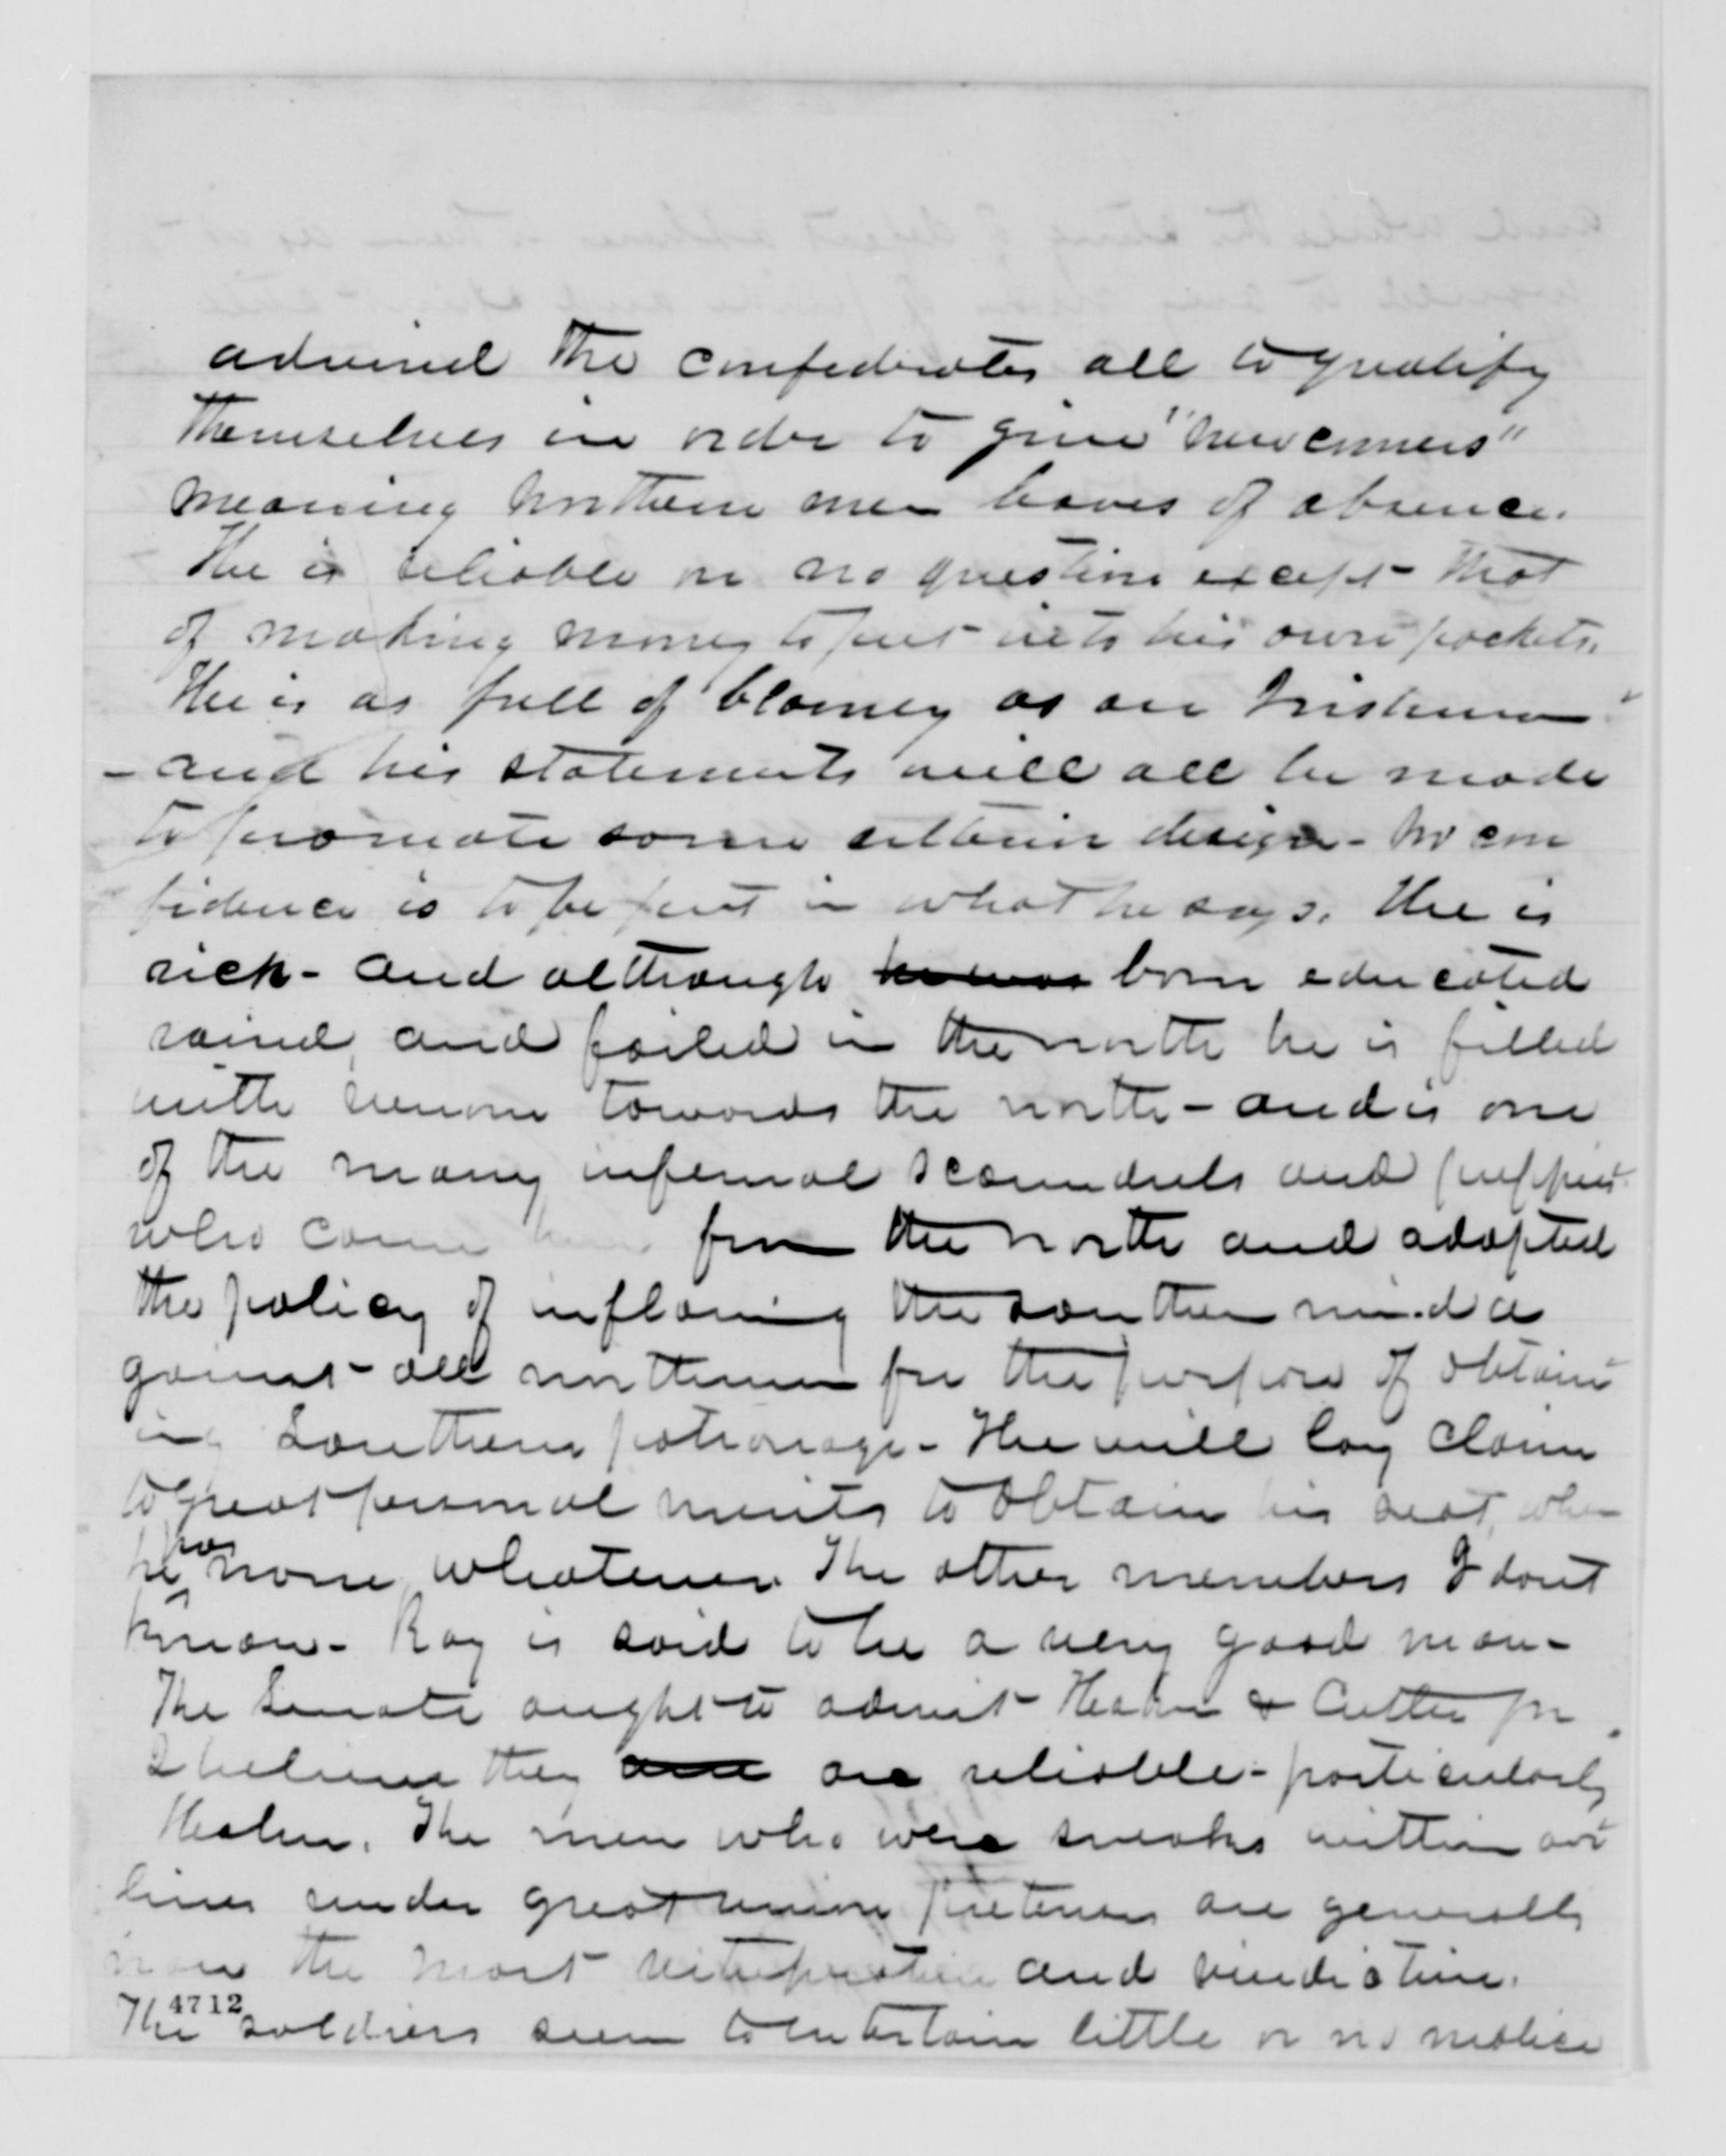 advised the confederates all to qualify
themselves in order to give "new comers"
meaning northern men leaves of absence.
He is reliable on no question except that
of making money to put into his own pockets.
He is as full of blarney as an Irishman
- and his statements will all be made
to promote some certain design - No con
fidence is to be put in what he says. He is
rich - and although he was born educated
raised, and failed in the north he is filled
with venom towards the north - and is one
of the many infernal scoundrels and puppies
who came here from the north and adopted
the policy of inflaming the southern mind a
gainst all northerners for the purpose of obtain
ing Southern patronage - He will lay claim
to great personal merits to obtain his seat, when
he has none whatever. The other members I dont
know - Ray is said to be a very good man -
The Senate ought to admit Hahn & Cutler for
I believe they are are reliable - particularly
Hahn. The men who were sneaks within our
lines under great union pretenses are generally
now the most vituperative and vindictive.
4712
The soldiers seem to entertain little or no malice